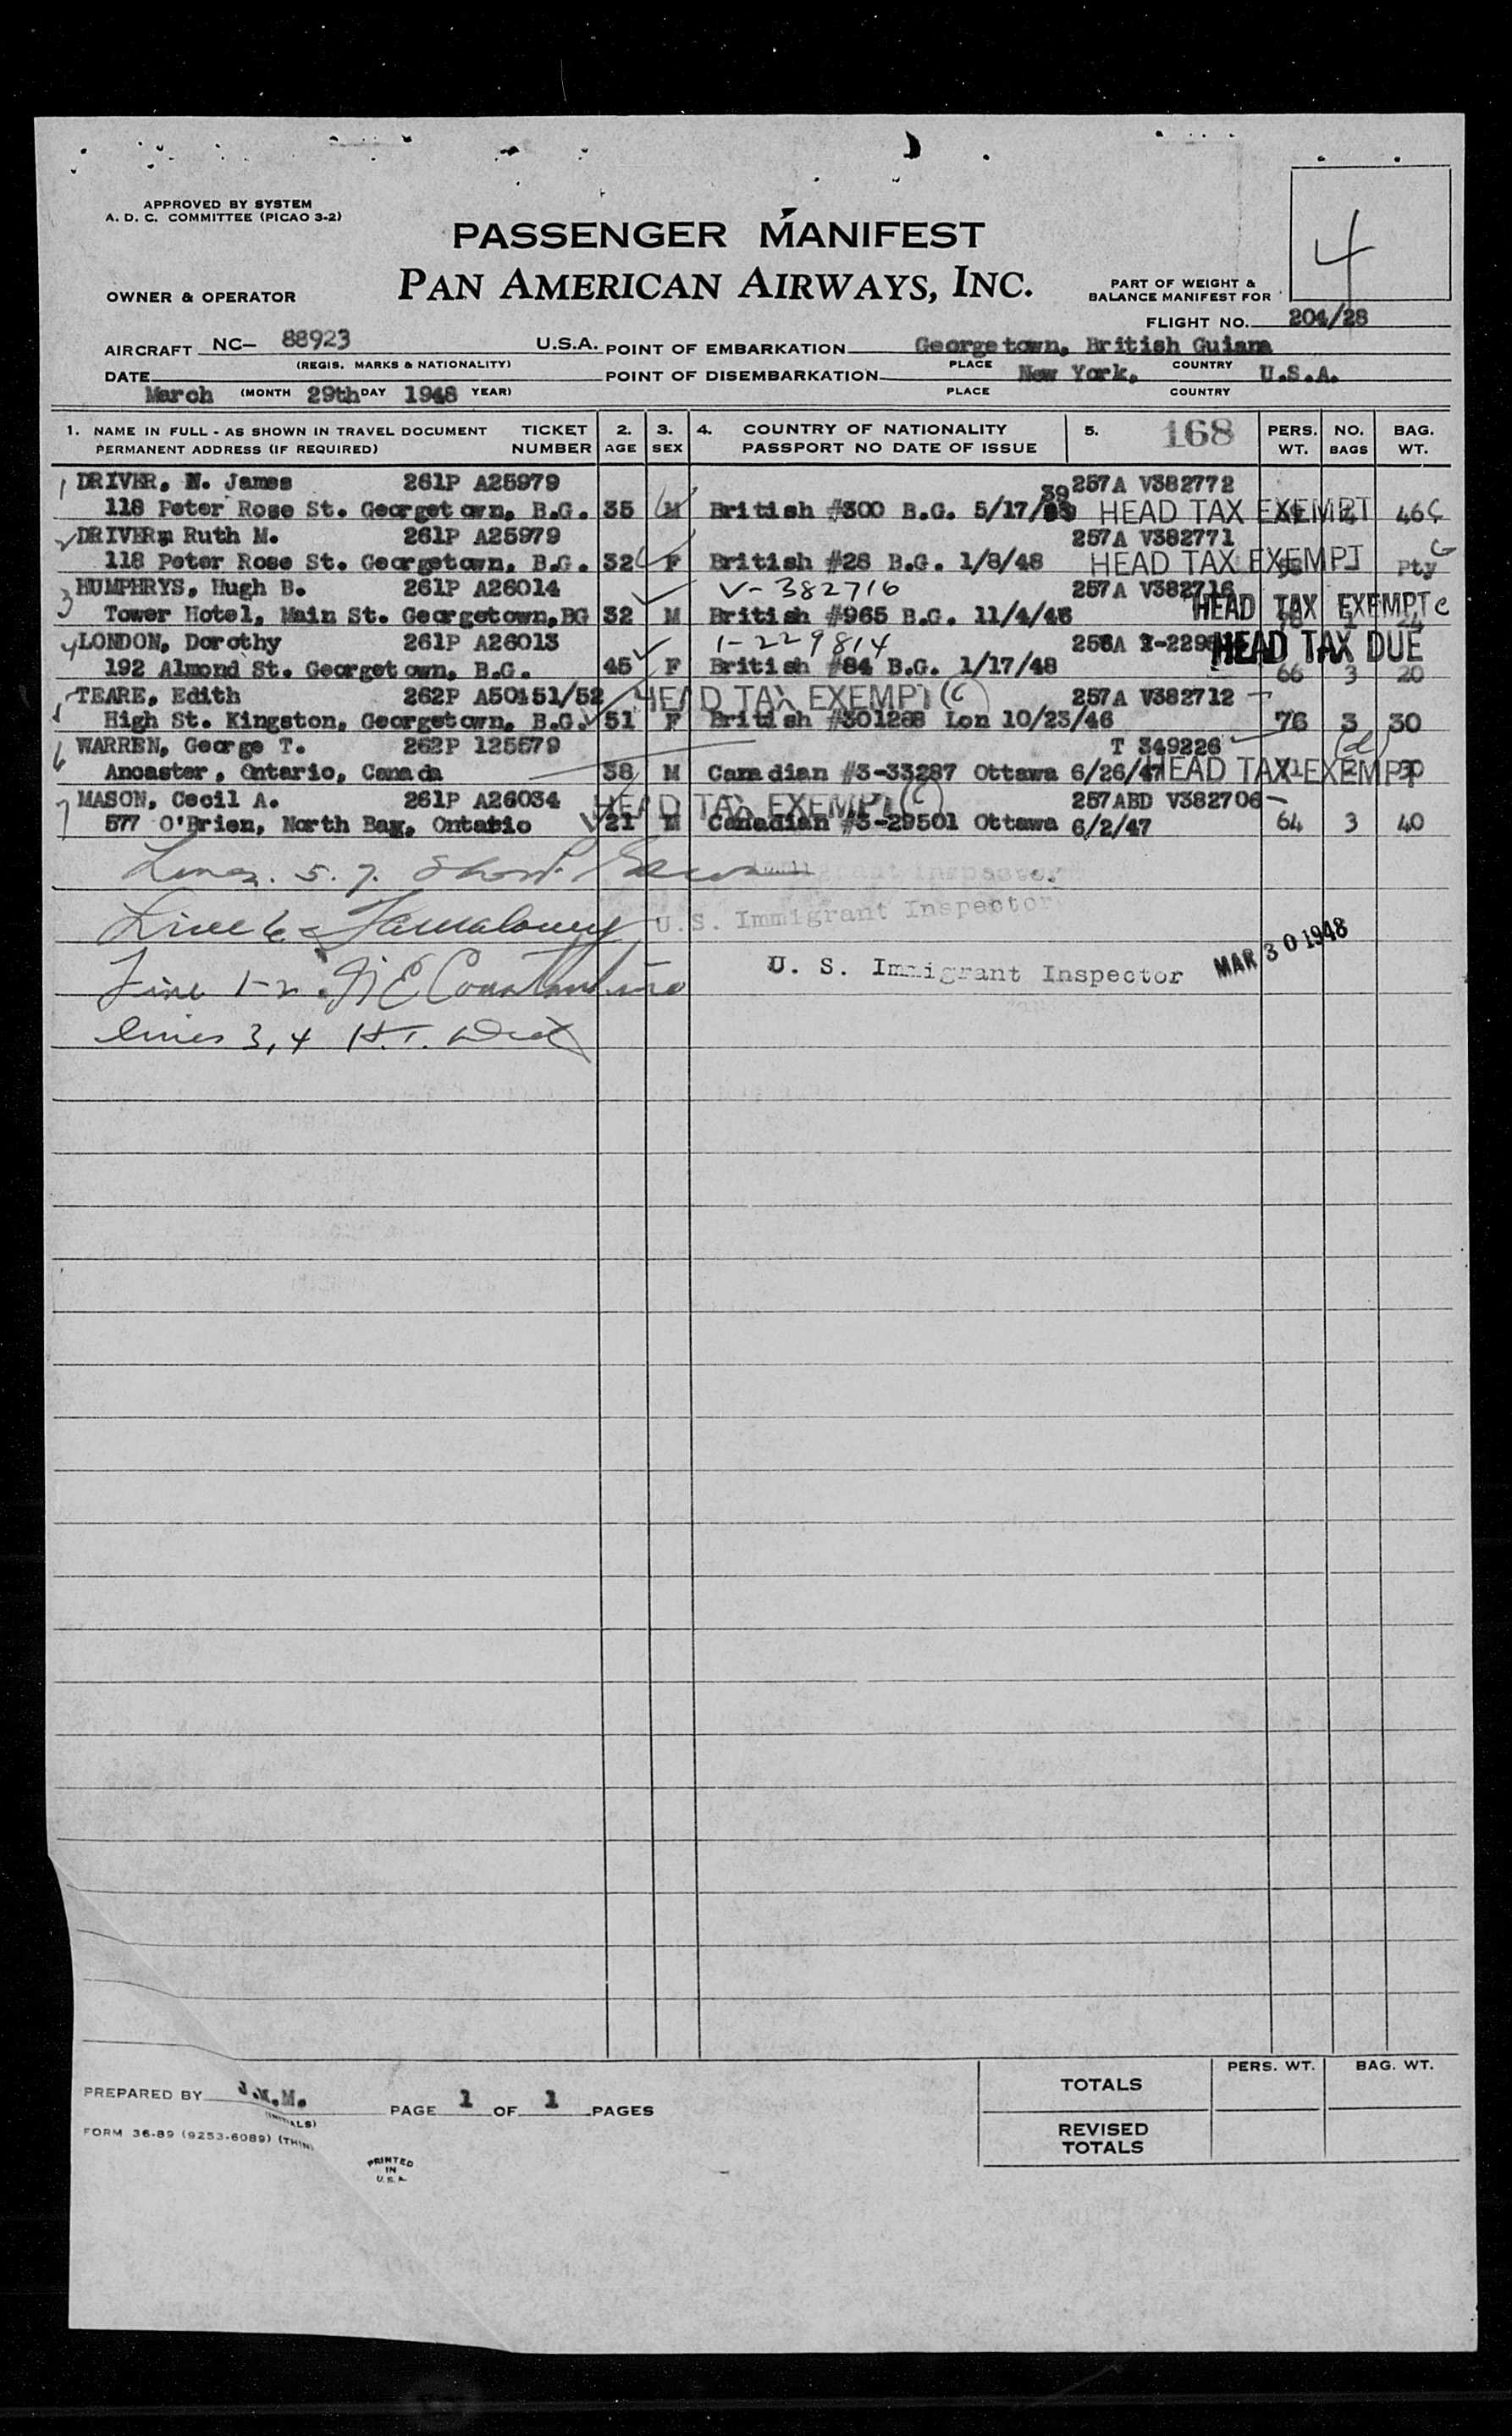 APPROVED BY SYSTEM
A. D. C. COMMITTEE (PICAO 3-2)
PASSENGER MANIFEST
4
OWNER & OPERATOR
PAN AMERICAN AIRWAYS, INC.
PART OF WEIGHT &
BALANCE MANIFEST FOR
FLIGHT NO. 204/28
AIRCRAFT NC- 88923 U.S.A. POINT OF EMBARKATION Georgetown, British Guiana
(REGIS. MARKS & NATIONALITY) PLACE COUNTRY
DATE POINT OF DISEMBARKATION New York, U.S.A.
March (MONTH 29th DAY 1948 YEAR) PLACE COUNTRY
1. NAME IN FULL - AS SHOWN IN TRAVEL DOCUMENT TICKET 2. 3. 4. COUNTRY OF NATIONALITY 5. 168 PERS. NO. BAG.
PERMANENT ADDRESS (IF REQUIRED) NUMBER AGE SEX PASSPORT NO DATE OF ISSUE WT. BAGS WT.
1 DRIVER, N. James 261P A25979 39 257A V382772
118 Peter Rose St. Georgetown, B.G. 35 M British #300 B.G. 5/17/ HEAD TAX EXEMPT 46 C
2 DRIVER, Ruth M. 261P A25979 257A V382771
118 Peter Rose St. Georgetown, B.G. 32 F British #28 B.G. 1/8/48 HEAD TAX EXEMPT Pty C
3 HUMPHRYS, Hugh B. 261P A26014 V-382716 257A V382716
Tower Hotel, Main St. Georgetown, BG 32 M British #965 B.G. 11/4/46 HEAD TAX EXEMPT c 24
4 LONDON, Dorothy 261P A26013 1-229814 256A I-2298 HEAD TAX DUE
192 Almond St. Georgetown, B.G. 45 F British #84 B.G. 1/17/48 66 3 20
5 TEARE, Edith 262P A50151/52 HEAD TAX EXEMPT (C) 257A V382712
High St. Kingston, Georgetown, B.G. 51 F British #301288 Lon 10/23/46 76 3 30
6 WARREN, George T. 262P 125579 T 349226 (d)
Ancaster, Ontario, Canada 38 M Canadian #3-33287 Ottawa 6/26/47 HEAD TAX EXEMPT
7 MASON, Cecil A. 261P A26034 HEAD TAX EXEMPT (C) 257ABD V382706
577 O'Brien, North Bay, Ontario 21 M Canadian #3-29501 Ottawa 6/2/47 64 3 40
Lines. 5. 7.
Line 6 U.S. Immigrant Inspector
MAR 30 1948
Line 1-2. U. S. Immigrant Inspector
lines 3, 4 H.T.
PREPARED BY J.M.M.
(INITIALS)
PAGE 1 OF 1 PAGES
FORM 36-89 (9253-6089) (THIN)
PRINTED
IN
U.S.A.
PERS. WT. BAG. WT.
TOTALS
REVISED
TOTALS